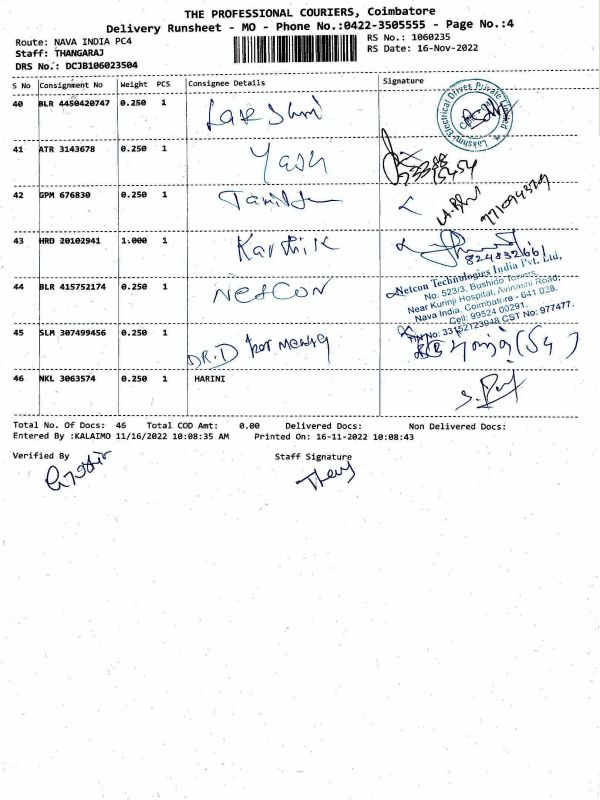 THE PROFESSIONAL COURIERS, Coimbatore
Delivery Runsheet - MO - Phone No.:0422-3505555 - Page No.:4
Route: NAVA INDIA PC4
RS No.: 1060235
Staff: THANGARAJ
RS Date: 16-Nov-2022
DRS No.: DCJB106023504
S No Consignment No Weight PCS Consignee Details Signature
40 BLR 4450420747 0.250 1 Lakshmi
Lakshmi Electrical Drives Private Limited
41 ATR 3143678 0.250 1 Yash
42 GPM 676830 0.250 1
43 HRD 20102941 1.000 1 Karthik
824832661
44 BLR 415752174 0.250 1 NetCon
Netcon Technologies India Pvt. Ltd,
No. 523/3, Bushido Towers,
Near Kurinji Hospital, Avinashi Road,
Nava India, Coimbatore - 641 028.
Cell: 99524 00291.
TIN No: 33152123948 CST No: 977477.
45 SLM 307499456 0.250 1 DR.D
46 NKL 3063574 0.250 1 HARINI
Total No. Of Docs: 46 Total COD Amt: 0.00 Delivered Docs: Non Delivered Docs:
Entered By :KALAIMO 11/16/2022 10:08:35 AM Printed On: 16-11-2022 10:08:43
Verified By Staff Signature